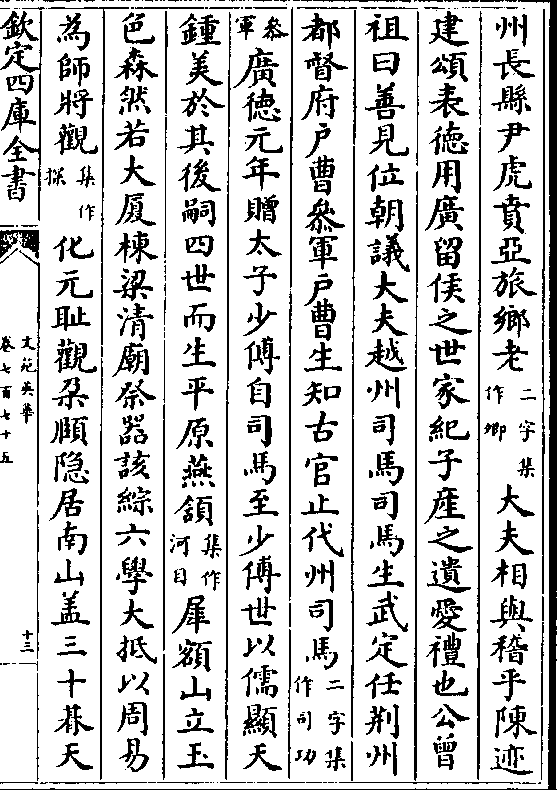 州長縣尹虎賁亞旅鄉老二字集作鄉大夫相與稽乎陳迹
建頌表德用廣留侯之世家紀子產之遺愛禮也公曾
祖曰善見位朝議大夫越州司馬司馬生武定任荆州
都督府戶曹叅軍戶曹生知古官止代州司馬二字集作司功
叅軍廣德元年贈太子少傅自司馬至少傅世以儒顯天
鍾美於其後嗣四世而生平原燕頷集作河目犀額山立玉
色森然若大厦棟梁清廟祭器該綜六學大抵以周易
為師將觀集作探化元耻觀朶頤隐居南山盖三十朞天
欽定四庫全書
文苑英華
卷七百七十五
十三